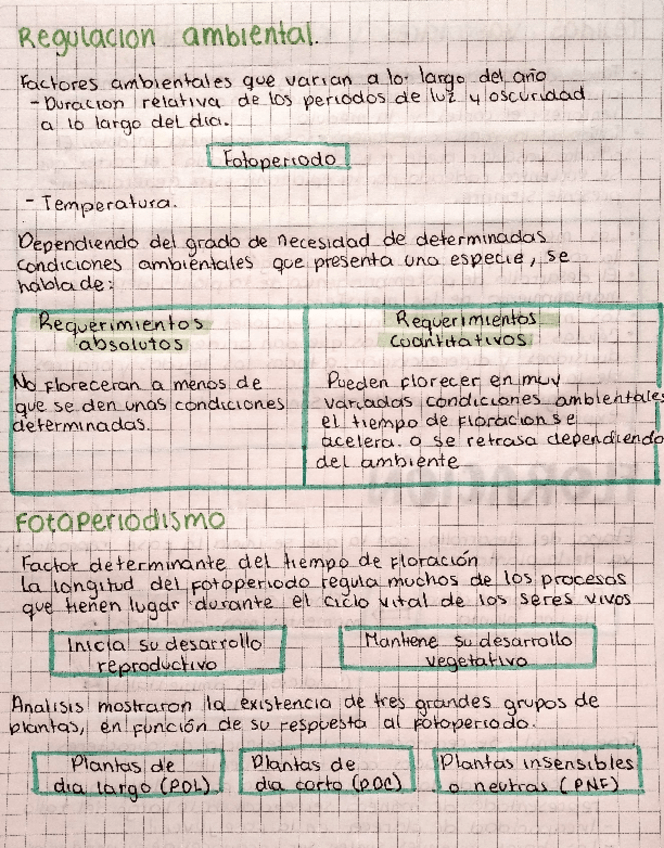 Regulacion ambiental.
Factores ambientales que varian a lo largo del año
- Duracion relativa de los periodos de luz y oscuridad
a lo largo del dia.
Fotoperiodo
- Temperatura.
Dependiendo del grado de necesidad de determinadas
condiciones ambientales que presenta una especie, se
habla de:
Requerimientos
absolutos
No floreceran a menos de
que se den unas condiciones
determinadas.
Requerimientos
cuantitativos
Pueden florecer en muy
variadas condiciones ambientales
el tiempo de floracion se
acelera. o se retrasa dependiendo
del ambiente
Fotoperiodismo
Factor determinante del tiempo de floración
La longitud del fotoperiodo regula muchos de los procesos
que tienen lugar durante el ciclo vital de los seres vivos
Inicia su desarrollo
reproductivo
Mantiene su desarrollo
vegetativo
Analisis mostraron la existencia de tres grandes grupos de
plantas, en función de su respuesta al fotoperiodo.
Plantas de
dia largo (PDL)
Plantas de
dia corto (PDC)
Plantas insensibles
o neutras (PNF)